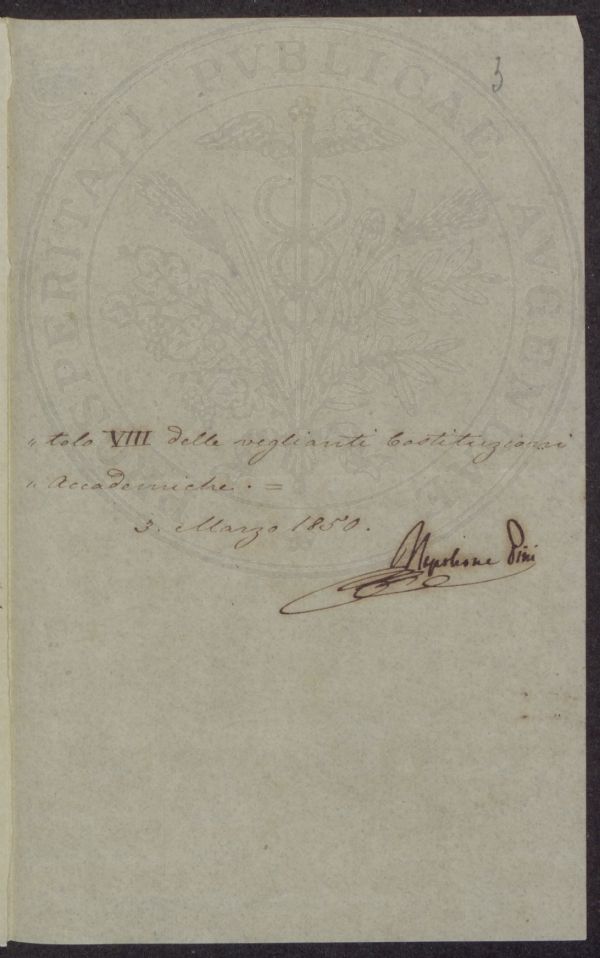 3
PROSPERITATI PVBLICAE AVGENDAE
„ tolo VIII delle veglianti Costituzioni
„ Accademiche . =
3. Marzo 1850.
Napoleone Pini